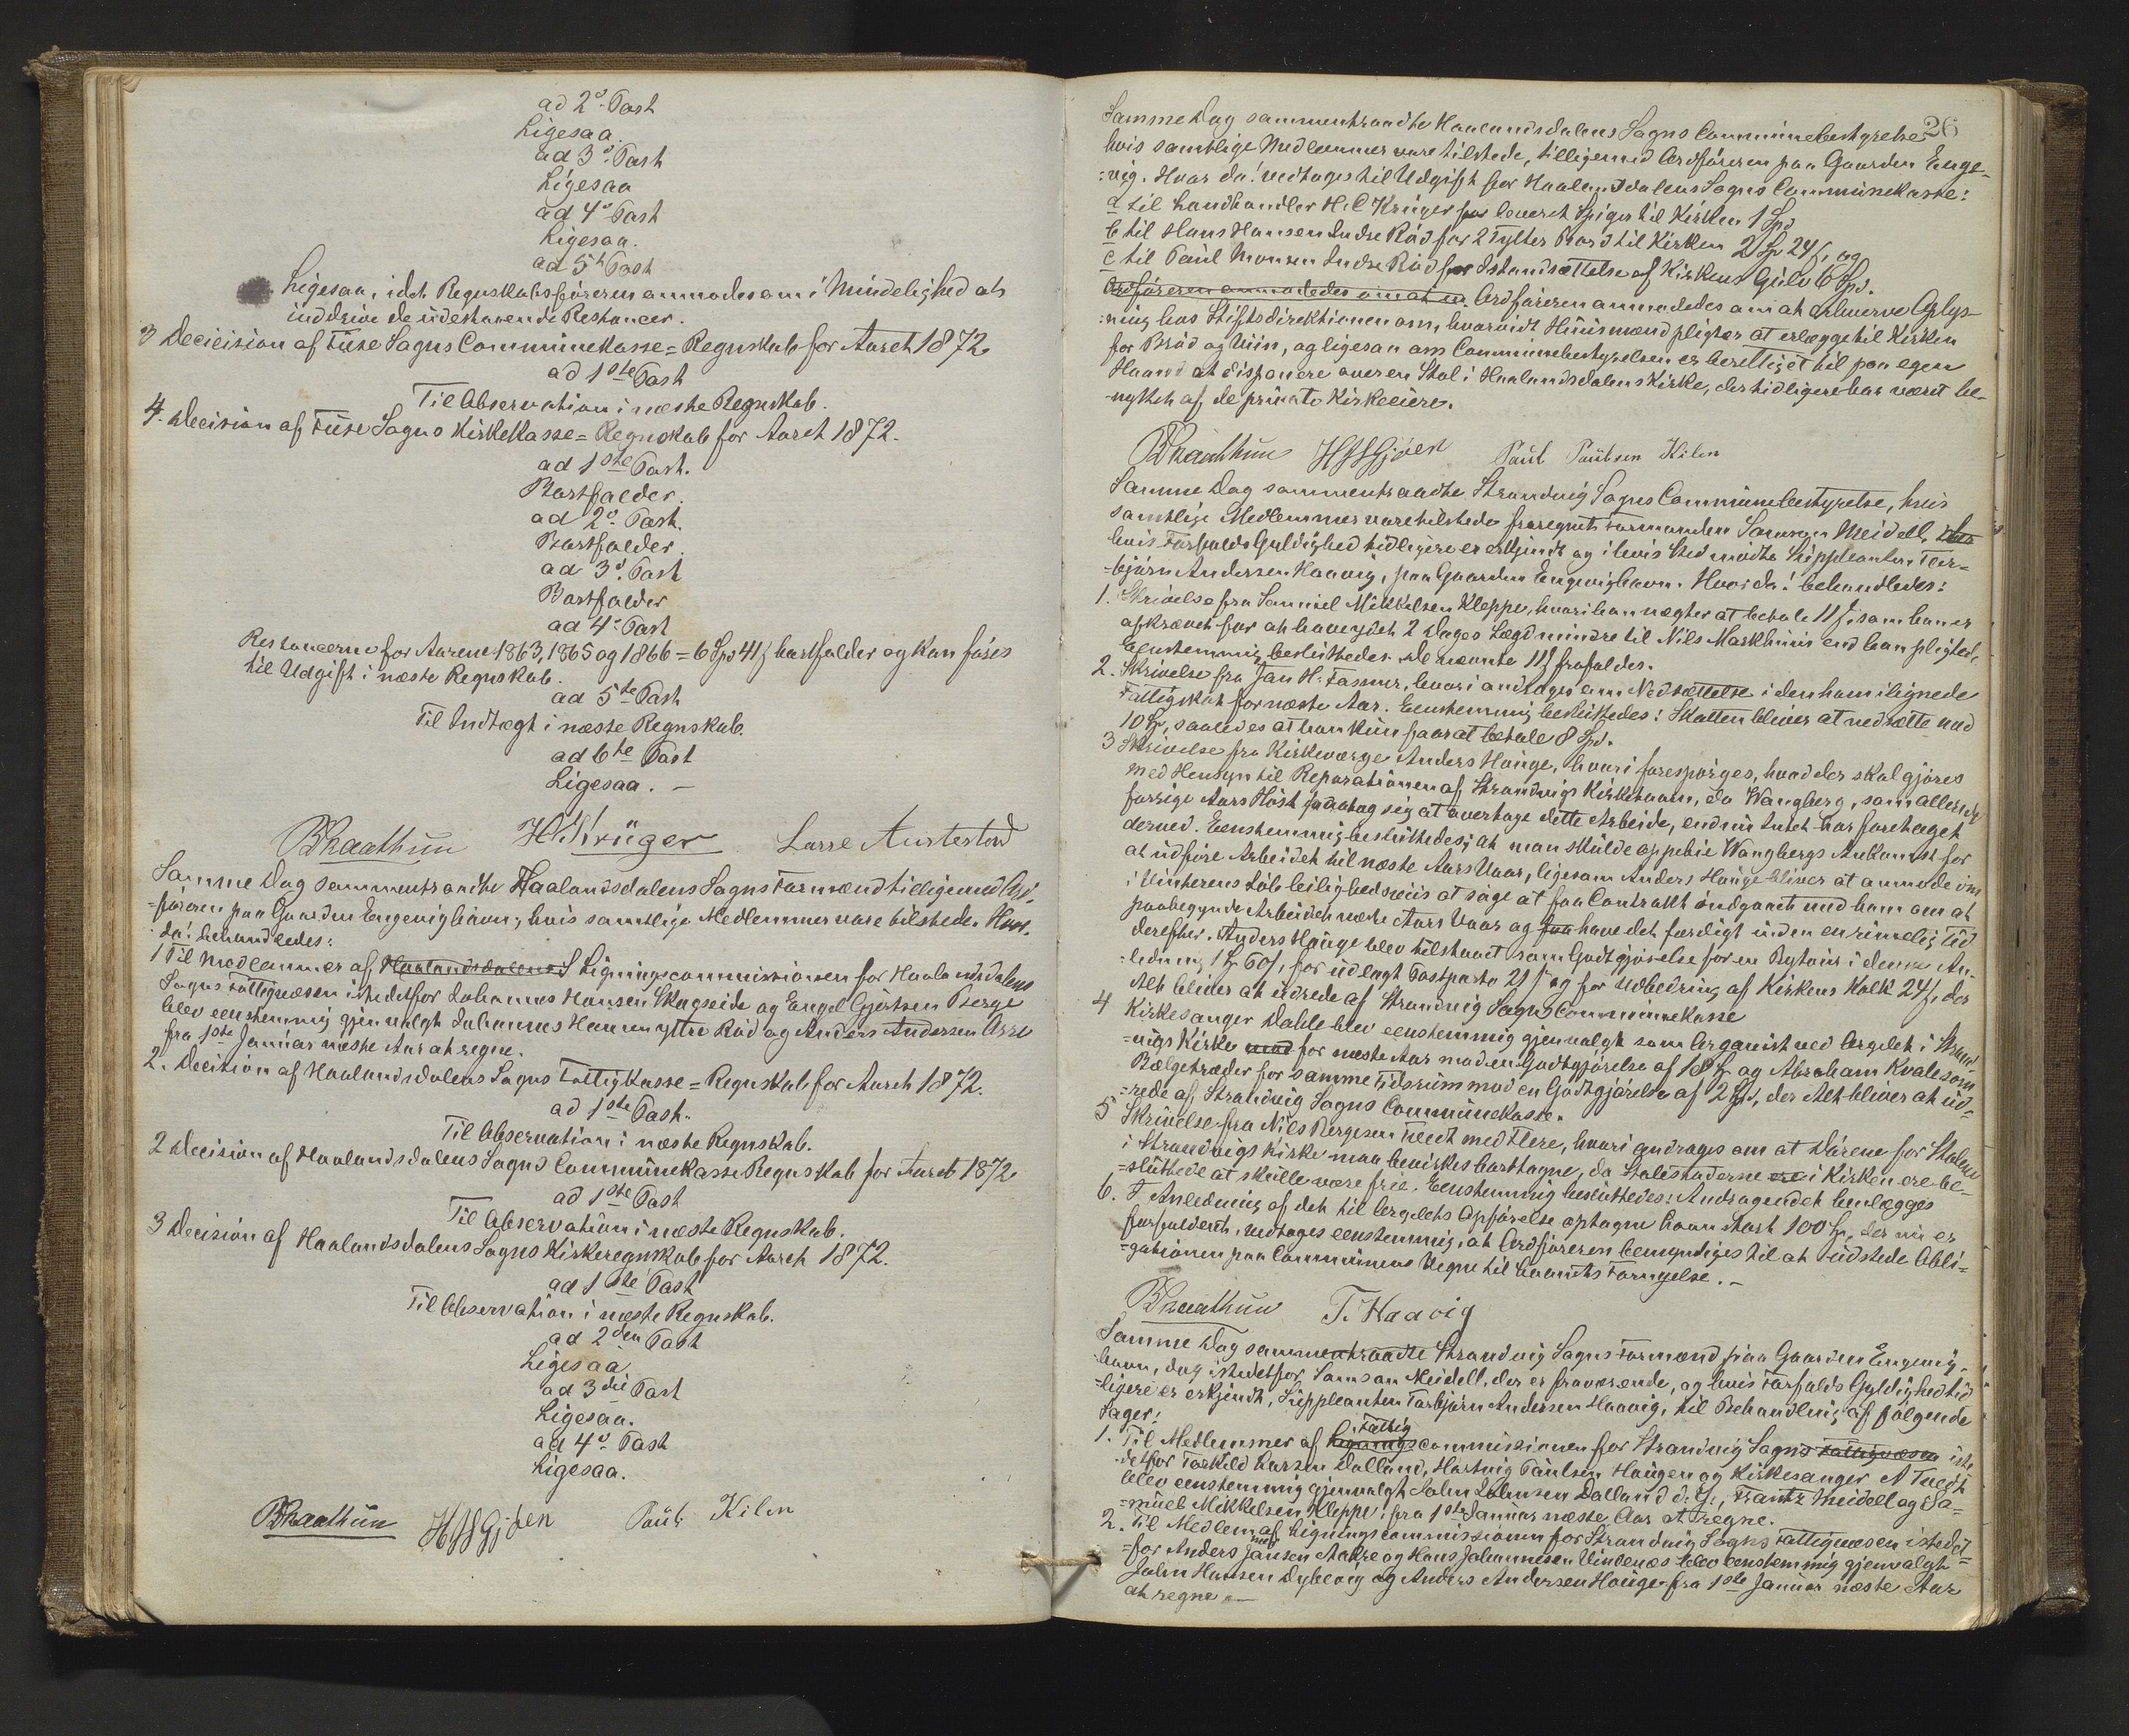 ad 2º Post
Ligesaa.
ad 3º Post
Ligesaa
ad 4º Post
Ligesaa.
ad 5te Post
Ligesaa, idet Regnskabsføreren anmodes om i Mindelighed at
inddrive de udestaaende Restancer.
3 Decicision af Fuse Sogns Communekasse=Regnskab for Aaret 1872
ad 1ste Post
Til Observation i næste Regnskab.
4. Decision af Fuse Sogns Kirkekasse=Regnskab for Aaret 1872.
ad 1ste Post.
Bortfalder.
ad 2º Post.
Bortfalder.
ad 3º Post
Bortfalder
ad 4º Post
Restancerne for Aarene 1863, 1865 og 1866 = 6 Spd 41 ß bortfalder og kan føres
til Udgift i næste Regnskab.
ad 5te Post
Til Indtægt i næste Regnskab.
ad 6te Post
Ligesaa. -
BRaathun H Krüger Lasse Austestad
Samme Dag sammentraadte Haalandsdalens Sogns Formænd tilligemed Ord-
=føreren paa Gaarden Engevighavn, hvis samtlige Medlemmer vare tilstede. Hvor
da! behandledes:
1 Til Medlemmer af Haalandsdalens S Ligningscommissionen for Haalandsdalens
Sogns Fattigvæsen istedetfor Johannes Hansen Skogseide og Engel Gjertsen Berge
blev eenstemmig gjenvalgt Johannes Hansen ytre Rød og Anders Andersen Orre
fra 1ste Januar næste Aar at regne.
2. Decision af Haalandsdalens Sogns Fattigkasse=Regnskab for Aaret 1872.
ad 1ste Post.
Til Observation i næste Regnskab.
2 Decision af Haalandsdalens Sogns Communekasse Regnskab for Aaret 1872
ad 1ste Post
Til Observation i næste Regnskab.
3 Decision af Haalandsdalens Sogns Kirkeregnskab for Aaret 1872.
ad 1ste Post
Til Observation i næste Regnskab.
ad 2den Post
Ligesaa
ad 3die Post
Ligesaa.
ad 4º Post
Ligesaa.
BRaathun HHGjøen Poul Kilen
26
Samme Dag sammentraadte Haalandsdalens Sogns Communebestyrelse
hvis samtlige Medlemmer vare tilstede, tilligemed Ordføreren paa Gaarden Enge-
:vig. Hvor da! vedtoges til Udgift for Haalandsdalens Sogns Communekasse:
a til Landhandler H. C Krüger for leveret Spiger til Kirken 1 Spd
b til Hans Hansen Indre Rød for 2 Tylter Bord til Kirken 2 Sp 24 ß, og
c til Poul Monsen Indre Rød for Istandsættelse af Kirkens Gulv 6 Spd.
Ordføreren anmodedes om at er. Ordføreren anmodedes om at erhverve Oplys-
:ning hos Stiftsdirektionen om, hvorvidt Huusmænd pligter at erlægge til Kirken
for Brød og Viin, og ligesaa om Communebestyrelsen er berettiget til paa egen
Haand at disponere over en Stol i Haalandsdalens Kirke, der tidligere har været be-
-nyttet af de private Kirkeeiere.
BRaathun HHGjøen Poul Poulsen Kilen
Samme Dag sammentraadte Strandvig Sogns Communebestyrelse, hvis
samtlige Medlemmer vare tilstede fraregnet Formanden Samson Meidell,
hvis Forfalds Gyldighed tidligere er erkjendt og i hvis Sted mødte Suppleanten Tor-
-bjørn Andersen Haavig, paa Gaarden Engevighavn. Hvor da! behandledes:
1. Skrivelse fra Samuel Mikkelsen Kleppe, hvori han nægter at betale 11 ß, som han er
afkrævet for at have ydet 2 Dages Lægd mindre til Nils Markhuus end han pligted,
Eenstemmig besluttedes: De nævnte 11 ß frafaldes.
2. Skrivelse fra Jan H. Fasmer, hvori andrages om Nedsættelse i den ham ilignede
Fattigskat for næste Aar. Eenstemmig besluttedes: Skatten bliver at nedsætte med
10 Sp, saaledes at han kun faar at betale 8 Spd.
3 Skrivelse fra Kirkeværge Anders Hauge, hvori forespørges, hvad der skal gjøres
med Hensyn til Reparationen af Strandvigs Kirketaarn, da Wangberg, som allerede
forrige Aars Høst paatog sig at overtage dette Arbeide, endnu Intet har foretaget
derved. Eenstemmig besluttedes, at man skulde oppebie Wangbergs Ankomst for
at udføre Arbeidet til næste Aars Vaar, ligesom Anders Hauge bliver at anmode om
i Vinterens Løb leilighedsviis at søge at faa Contrakt indgaaet med ham om at
paabegynde Arbeidet næste Aars Vaar og faa have det færdigt inden en rimelig Tid
derefter. Anders Hauge blev tilstaaet som Godtgjørelse for en Bytour i denne An-
-ledning 1 Sp 60 ß, for udlagt Postporto 21 ß og for Udbedring af Kirkens Kalk 24 ß, der
Alt bliver at udrede af Strandvig Sogns Communekasse
4 Kirkesanger Dahle blev eenstemmig gjenvalgt som Organist ved Orgelet i Strand-
=vigs Kirke med for næste Aar mod en Godtgjørelse af 18 Sp og Abraham Kvale som
Bælgetræder for samme Tidsrum mod en Godtgjørelse af 2 Spd, der Alt bliver at ud-
=rede af Strandvig Sogns Communekasse.
5 Skrivelse fra Nils Børgesen Tvedt med Flere, hvori andrages om at Dørene for Stolene
i Strandvigs Kirke maa bevirkes borttagne, da Stolestaderne ere i Kirken ere be-
=sluttede at skulle være frie. Eenstemmig besluttedes: Andragendet henlægges
6. I Anledning af det til Orgelets Opførelse optagne Laan stort 100 Sp, der nu er
forfaldent, vedtoges eenstemmig, at Ordføreren bemyndiges til at udstede Obli-
=gationen paa Communens Vegne til Laanets Fornyelse. -
BRaathun T. Haavig
Samme Dag sammentraadte Strandvig Sogns Formænd paa Gaarden Engevig-
havn, dog istedetfor Samson Meidell, der er fraværende, og hvis Forfalds Gyldighed tid
=ligere er erkjendt, Suppleanten Torbjørn Andersen Haavig, til Behandling af følgende
Sager:
1. Til Medlemmer af Lignings Fattigcommissionen for Strandvig Sogns Fattigvæsen iste
=detfor Torkild Larsen Dalland, Hartvig Paulsen Haugen og Kirkesanger N Tvedt
blev eenstemmig gjenvalgt John Johnsen Dalland d. y., Frantz Meidell og Sa-
=muel Mikkelsen Kleppe, fra 1ste Januar næste Aar at regne.
2. Til Medlem af Ligningscommissionen for Strandvig Sogns Fattigvæsen istedet=
=for Anders Jansen Aakre og Hans Johannesen Vindenæs blev eenstemmig gjenvalgt
John Hansen Dybevig og Anders Andersen Hauge fra 1ste Januar næste Aar
at regne. -